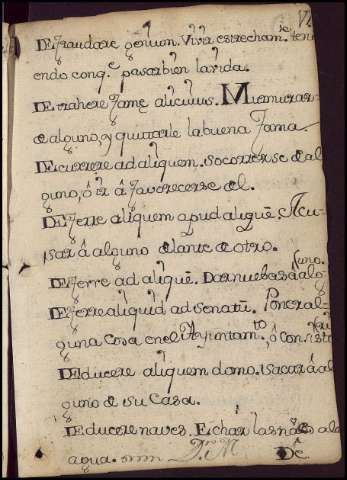 Defraudare genium. Vivir estrecham.te teni
endo conq.e pasar bien la vida.
Detrahere famę alicuius. Murmurar
de alguno, y quitarle la buena fama.
Decurrere ad aliquem. socorrerse de al
guno, ó ir á favorecerse del.
Deferre aliquem apud aliquē. Acu-
sar á alguno delante de otro.
Deferre ad aliquē. Dar nuebas á alg
uno.
Deferre aliquid ad senatū. Poner al-
guna Cosa en el Ayuntam.to ó Consisto
Deducere aliquem domo. sacar á al
guno de su Casa.
Deducere naves. Echar las naos al
agua.
De